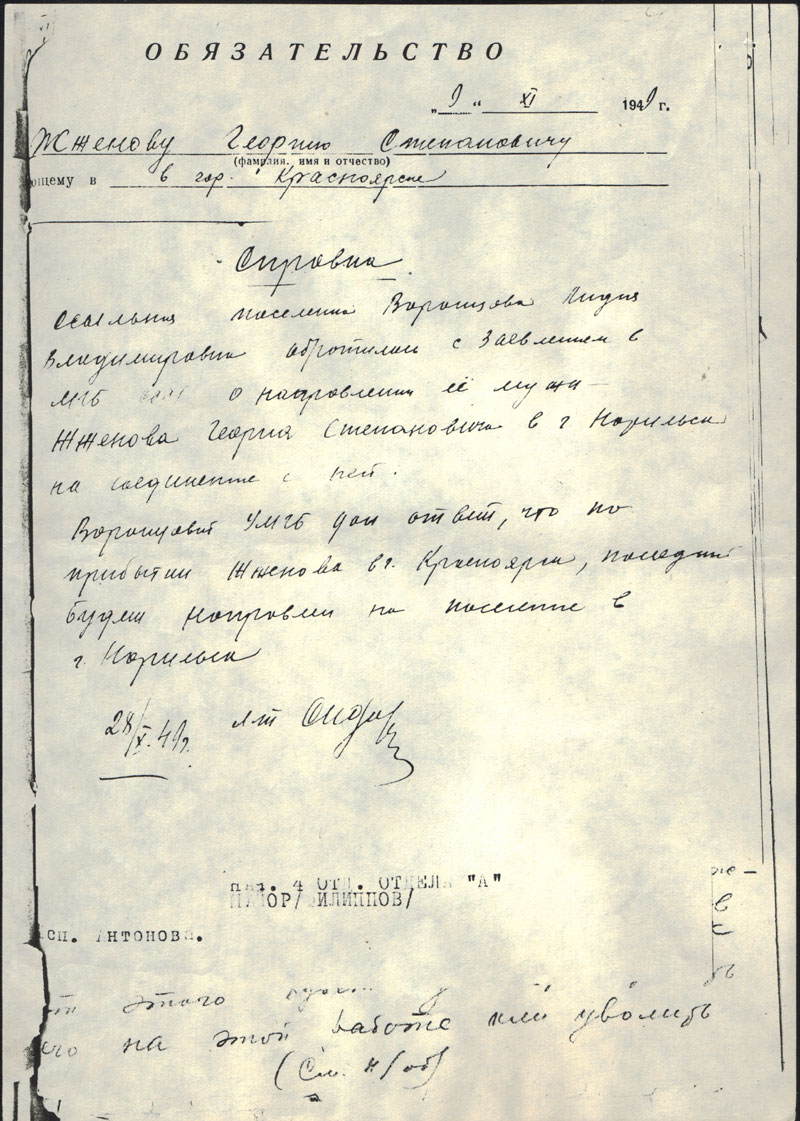 ОБЯЗАТЕЛЬСТВО
„9“ XI 1949 г.
Жженову Георгию Степановичу
(фамилия, имя и отчество)
ющему в в гор. Красноярске
Справка
Воронцова Лидия
Владимировна обратилась с заявлением в
МГБ о направлении её мужа –
Жженова Георгия Степановича в г Норильск
на соединение с ней.
Воронцовой УМГБ дан ответ, что по
прибытии Жженова в г. Красноярск, последний
будет направлен на поселение в
г. Норильск
28/X.49г. л-т
НАЧ. 4 ОТД. ОТДЕЛА "А"
МАЙОР/ ИЛИППОВ/
сп. Антонова.
этого
его на этой работе или уволить
(См. н/об)